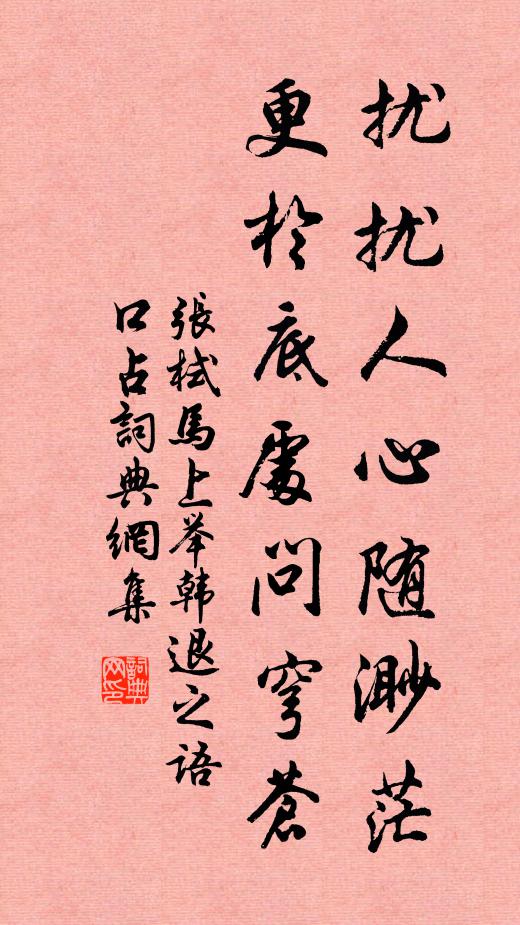 扰扰人心随渺茫
更於底處问穹蒼
張栻馬上举韩退之语
口占詞典網集
詞典网印